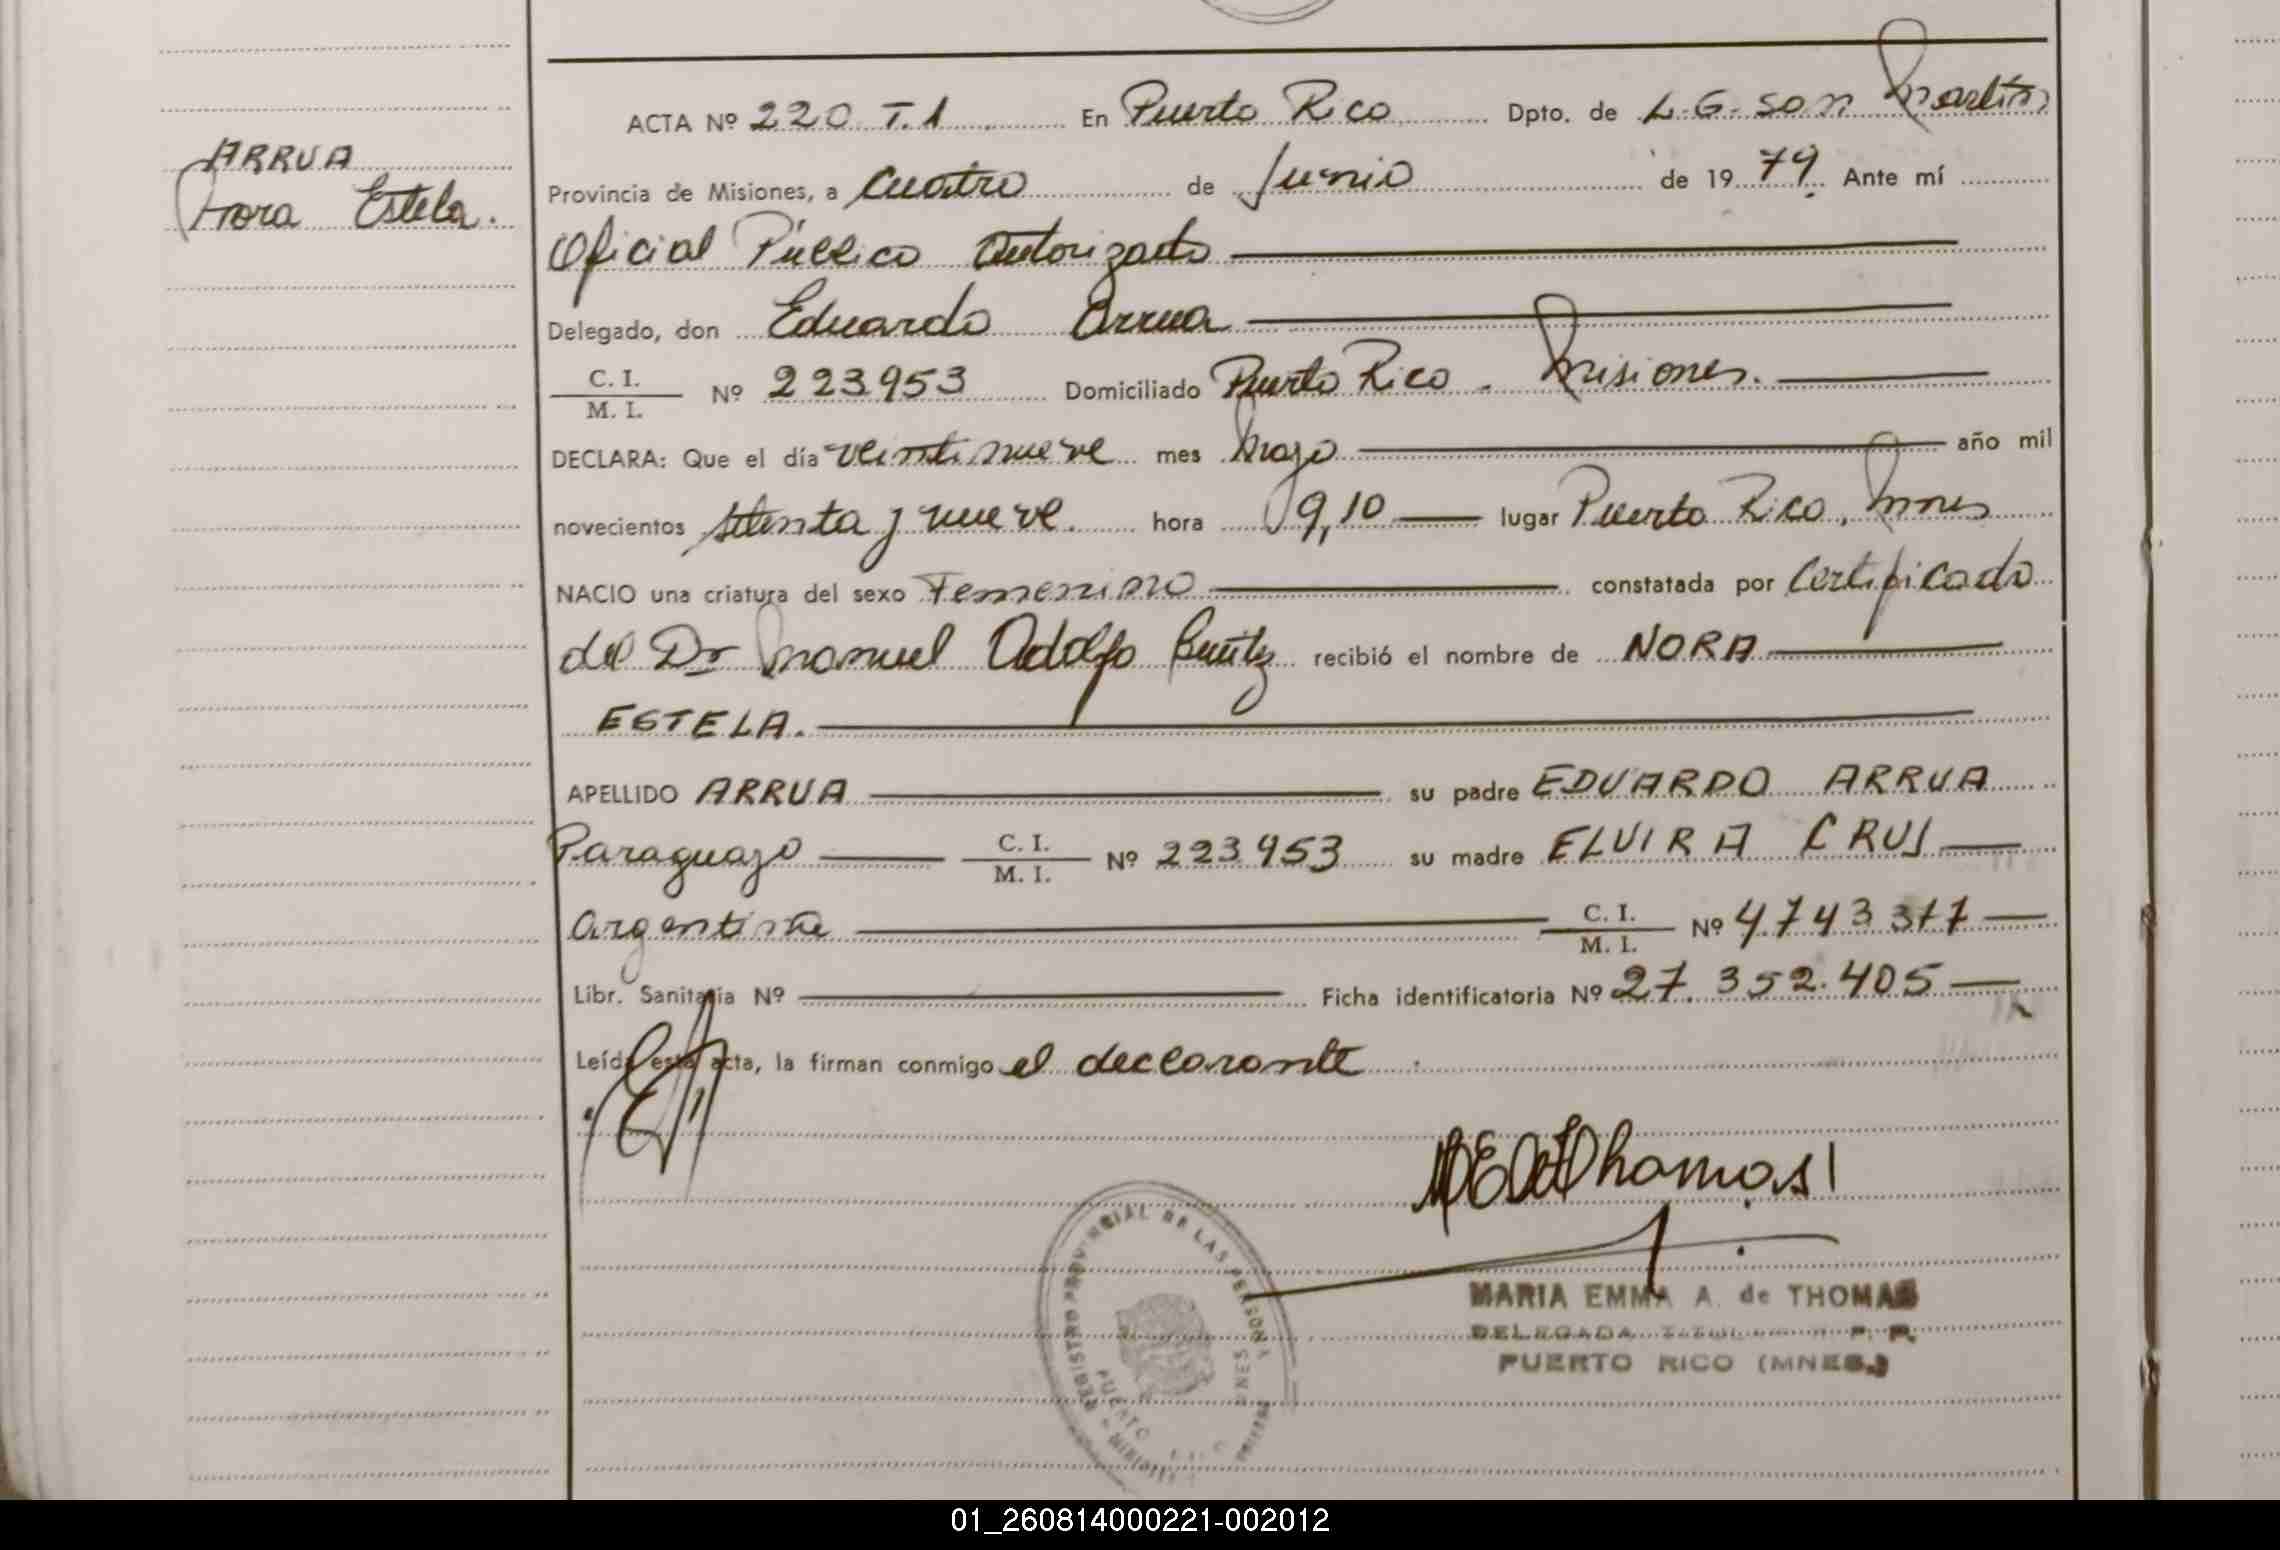 ACTA Nº 220 T.1 En Puerto Rico Dpto. de L.G. San Martín
ARRUA
Nora Estela.
Provincia de Misiones, a Cuatro de Junio de 1979. Ante mí
Oficial Público Autorizado
Delegado, don Eduardo Arrua
C. I.
M. I. Nº 223953 Domiciliado Puerto Rico - Misiones.
DECLARA: Que el día veintinueve mes Mayo año mil
novecientos setenta y nueve. hora 9,10 lugar Puerto Rico, Mnes
NACIO una criatura del sexo Femenino constatada por Certificado
del Dr Manuel Adolfo Benítez recibió el nombre de NORA
ESTELA.
APELLIDO ARRUA su padre EDUARDO ARRUA
Paraguayo C. I.
M. I. Nº 223953 su madre ELVIRA CRUS
Argentina C. I.
M. I. Nº 4743377
Libr. Sanitaria Nº Ficha identificatoria Nº 27.352.405
Leída esta acta, la firman conmigo el declarante
Thomas
REGISTRO PROVINCIAL DE LAS PERSONAS
PUERTO RICO
MARIA EMMA A. de THOMAS
DELEGADA TITULAR R. P. P.
PUERTO RICO (MNES.)
01_260814000221-002012